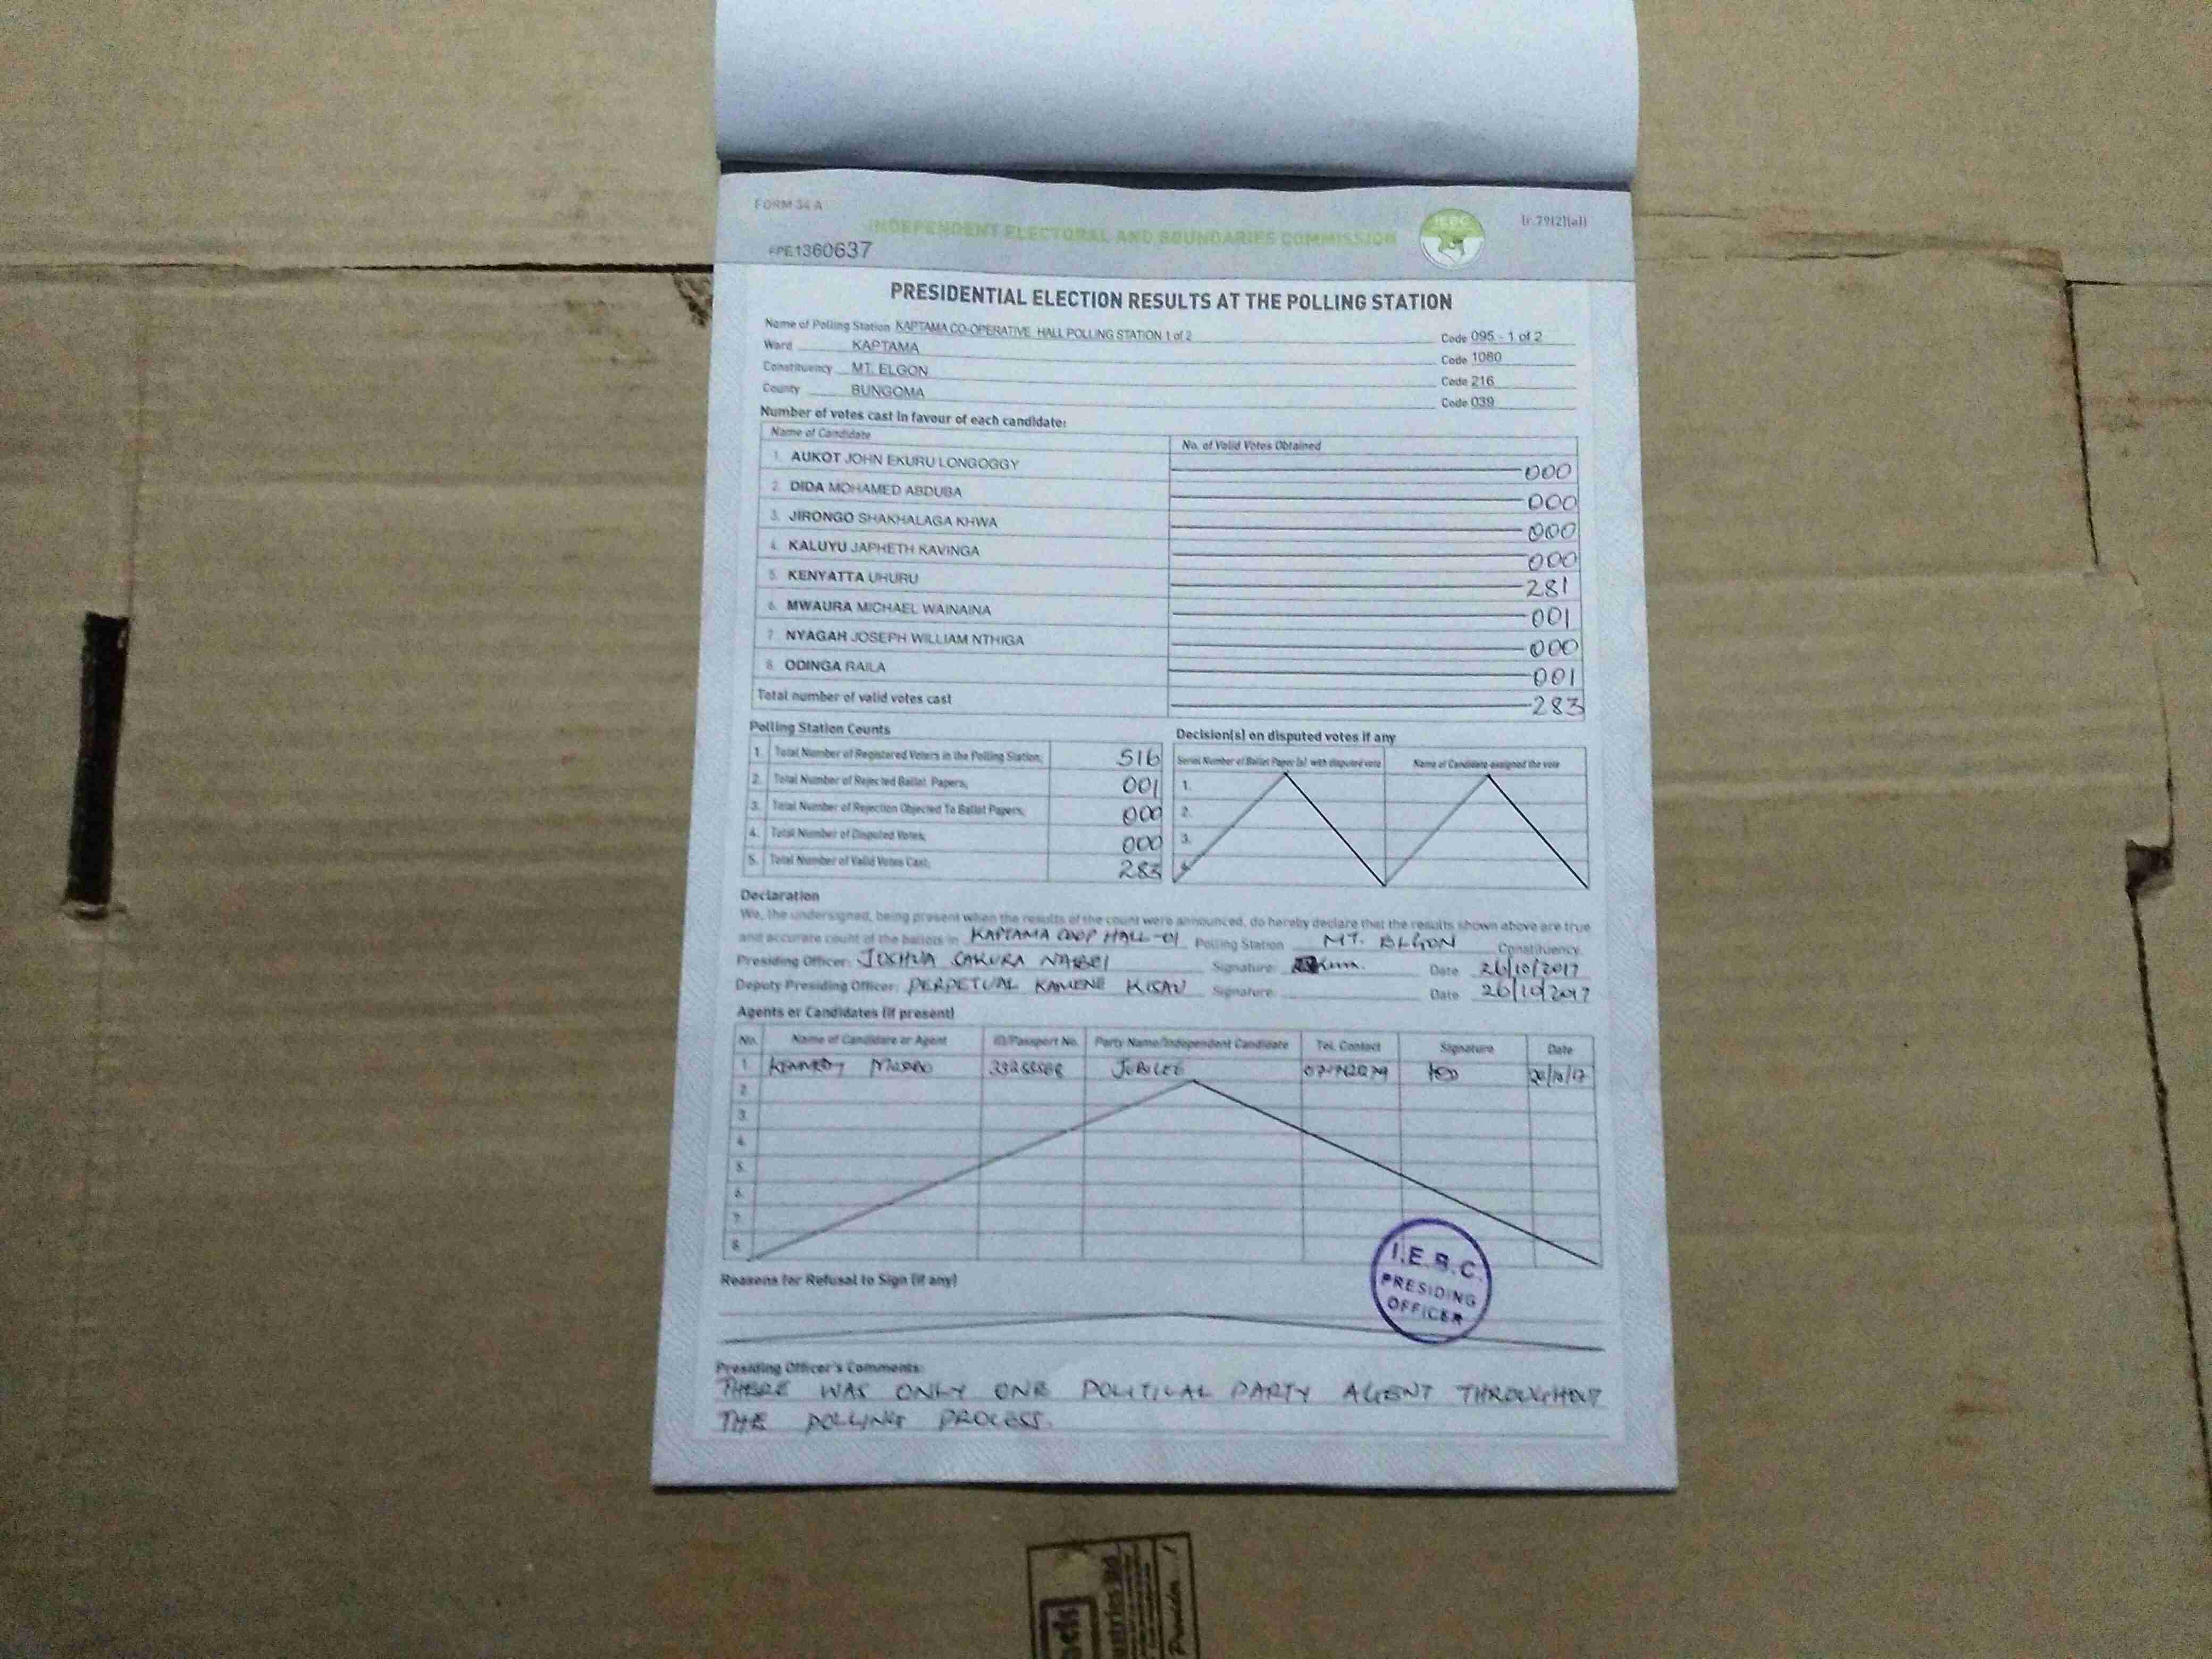 FORM 34 A
INDEPENDENT ELECTORAL AND BOUNDARIES COMMISSION
IEBC
[r.79(2)(a)]
1360637
PRESIDENTIAL ELECTION RESULTS AT THE POLLING STATION
Name of Polling Station KAPTAMA CO-OPERATIVE HALL POLLING STATION 1 of 2 Code 095 - 1 of 2
Ward KAPTAMA Code 1080
Constituency MT. ELGON Code 216
County BUNGOMA Code 039
Number of votes cast in favour of each candidate:
Name of Candidate No. of Valid Votes Obtained
1. AUKOT JOHN EKURU LONGOGGY 000
2. DIDA MOHAMED ABDUBA 000
3. JIRONGO SHAKHALAGA KHWA 000
4. KALUYU JAPHETH KAVINGA 000
5. KENYATTA UHURU 281
6. MWAURA MICHAEL WAINAINA 001
7. NYAGAH JOSEPH WILLIAM NTHIGA 000
8. ODINGA RAILA 001
Total number of valid votes cast 283
Polling Station Counts
1. Total Number of Registered Voters in the Polling Station; 516
2. Total Number of Rejected Ballot Papers; 001
3. Total Number of Rejection Objected To Ballot Papers; 000
4. Total Number of Disputed Votes; 000
5. Total Number of Valid Votes Cast; 283
Decision(s) on disputed votes if any
Serial Number of Ballot Paper (s) with disputed vote Name of Candidate assigned the vote
1.
2.
3.
4.
Declaration
We, the undersigned, being present when the results of the count were announced, do hereby declare that the results shown above are true
and accurate count of the ballots in KAPTAMA COOP HALL-01 Polling Station MT. ELGON Constituency
Presiding Officer: JOSHUA Signature: Date 26/10/2017
Deputy Presiding Officer: PERPETUAL KAMENE Signature: Date 26/10/2017
Agents or Candidates (if present)
No. Name of Candidate or Agent ID/Passport No. Party Name/Independent Candidate Tel. Contact Signature Date
1. KENNEDY JUBILEE 26/10/17
2.
3.
4.
5.
6.
7.
8.
I.E.B.C.
PRESIDING
OFFICER
Reasons for Refusal to Sign (if any)
Presiding Officer's Comments:
THERE WAS ONLY ONE POLITICAL PARTY AGENT THROUGHOUT
THE POLLING PROCESS.